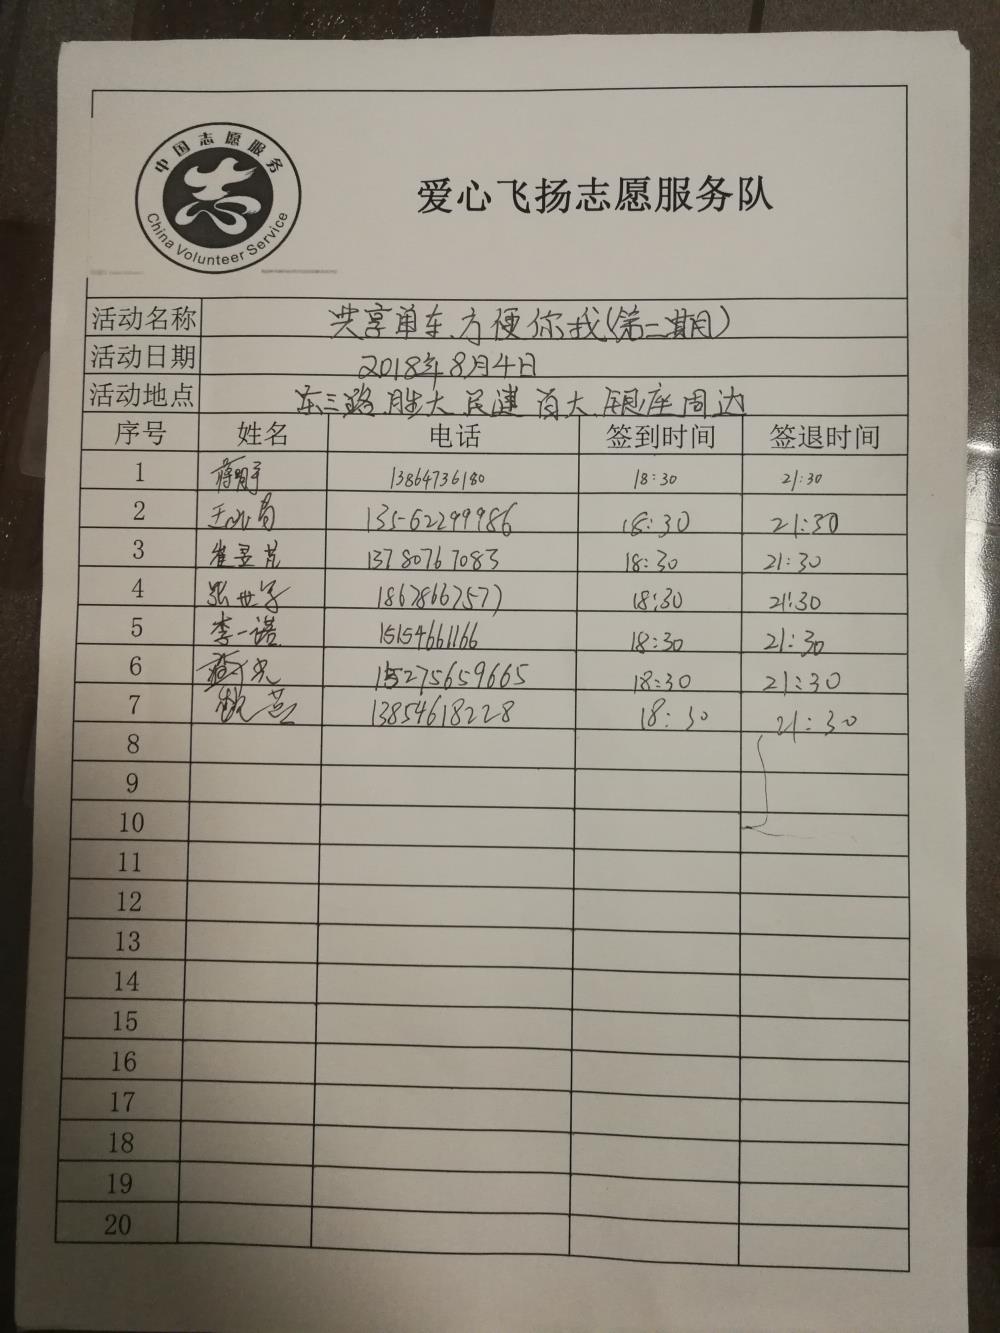 中国志愿服务
China Volunteer Service
爱心飞扬志愿服务队
活动名称 共享单车方便你我(第二期)
活动日期 2018年8月4日
活动地点 东三路胜大 民建 百大 银座周边
序号 姓名 电话 签到时间 签退时间
1 13864736180 18:30 21:30
2 13562299986 18:30 21:30
3 崔昱芃 13780767083 18:30 21:30
4 张世 18678667577 18:30 21:30
5 李一诺 15154661166 18:30 21:30
6 15275659665 18:30 21:30
7 13854618228 18:30 21:30
8
9
10
11
12
13
14
15
16
17
18
19
20